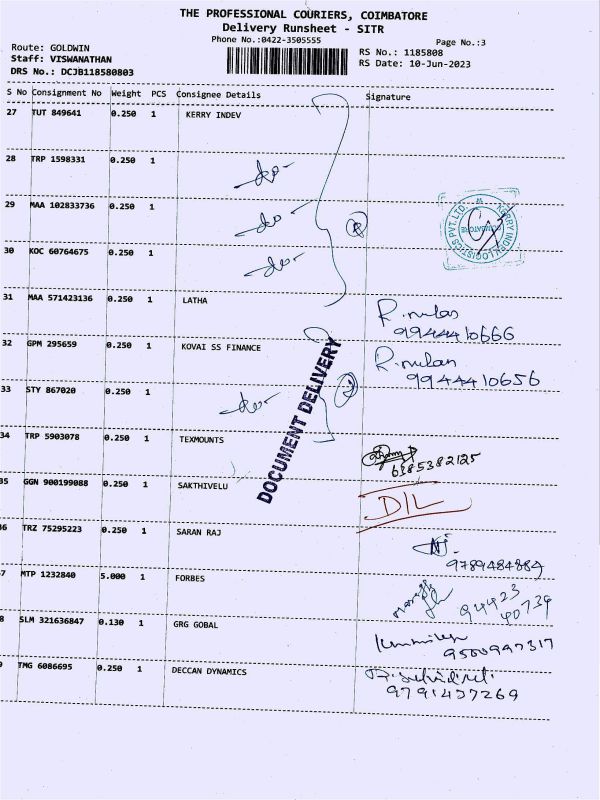 THE PROFESSIONAL COURIERS, COIMBATORE
Delivery Runsheet - SITR
Phone No.:0422-3505555
Page No.:3
Route: GOLDWIN
Staff: VISWANATHAN
DRS No.: DCJB118580803
RS No.: 1185808
RS Date: 10-Jun-2023
S No Consignment No Weight PCS Consignee Details Signature
27 TUT 849641 0.250 1 KERRY INDEV
28 TRP 1598331 0.250 1 -do-
29 MAA 102833736 0.250 1 -do-
30 KOC 60764675 0.250 1 -do-
KERRY INDEV LOGISTICS PVT.LTD.
COIMBATORE
31 MAA 571423136 0.250 1 LATHA
9944410666
32 GPM 295659 0.250 1 KOVAI SS FINANCE
9944410656
33 STY 867020 0.250 1 -do-
DOCUMENT DELIVERY
34 TRP 5903078 0.250 1 TEXMOUNTS
6385382125
35 GGN 900199088 0.250 1 SAKTHIVELU D/L
36 TRZ 75295223 0.250 1 SARAN RAJ
9789484884
7 MTP 1232840 5.000 1 FORBES
94423
40739
8 SLM 321636847 0.130 1 GRG GOBAL
9500997317
9 TMG 6086695 0.250 1 DECCAN DYNAMICS
9791437269